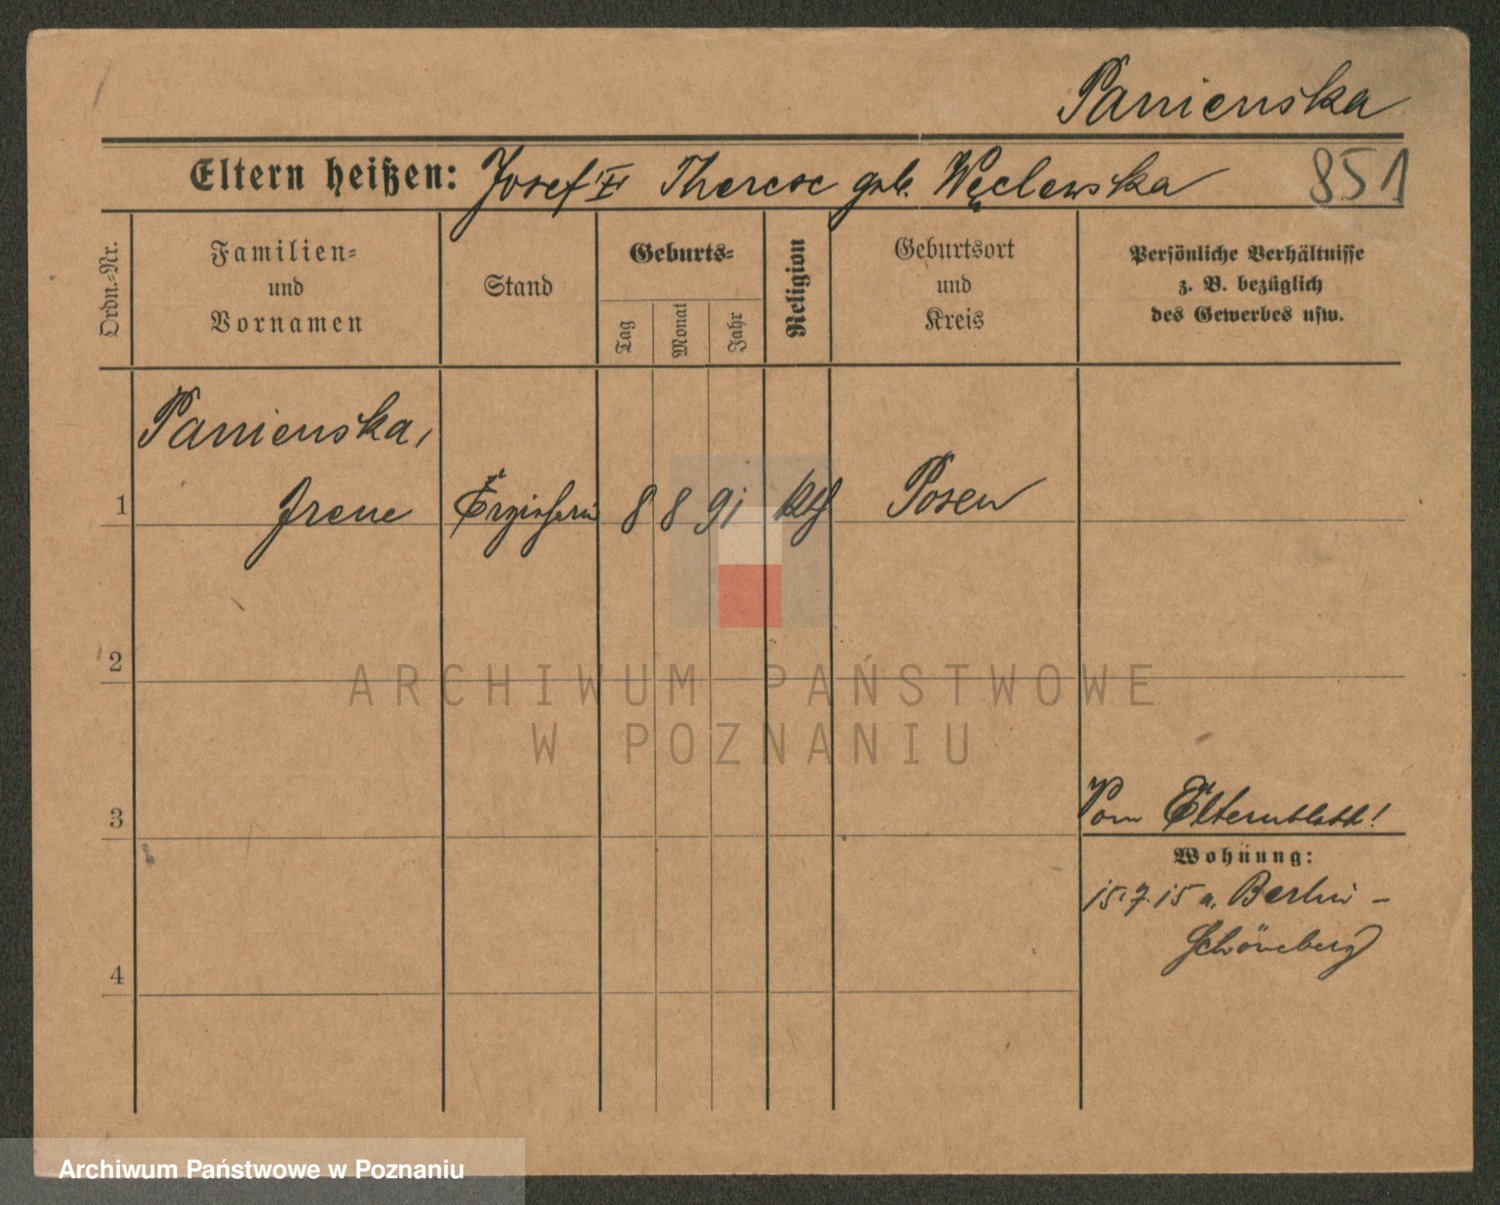 Panienska
Eltern heißen: Josef Therese geb. Węclewska 851
Ordn.-Nr.
Familien-
und
Vornamen
Stand
Geburts-
Tag
Monat
Jahr
Religion
Geburtsort
und
Kreis
Persönliche Verhältnisse
z. B. bezüglich
des Gewerbes usw.
Panienska,
1 Irene Erzieherin 8 8 91 kth Posen
2
ARCHIWUM PAŃSTWOWE
W POZNANIU
3
Vom Elternblatt!
Wohnung:
15.7.15 n. Berlin -
Schöneberg
4
Archiwum Państwowe w Poznaniu